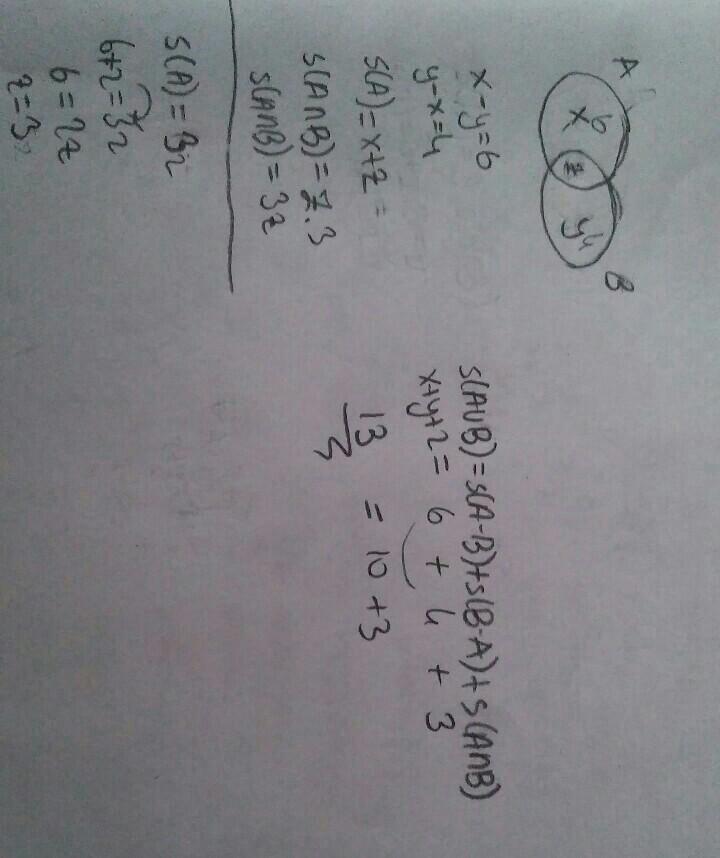 A
B
x 6
z
y 4
x - y = 6
y - x = 4
s(A) = x + z =
s(A∩B) = z . 3
s(A∩B) = 3z
s(A) = 3z
6 + z = 3z
6 = 2z
z = 3
s(A∪B) = s(A-B) + s(B-A) + s(A∩B)
x + y + z = 6 + 4 + 3
13 = 10 + 3